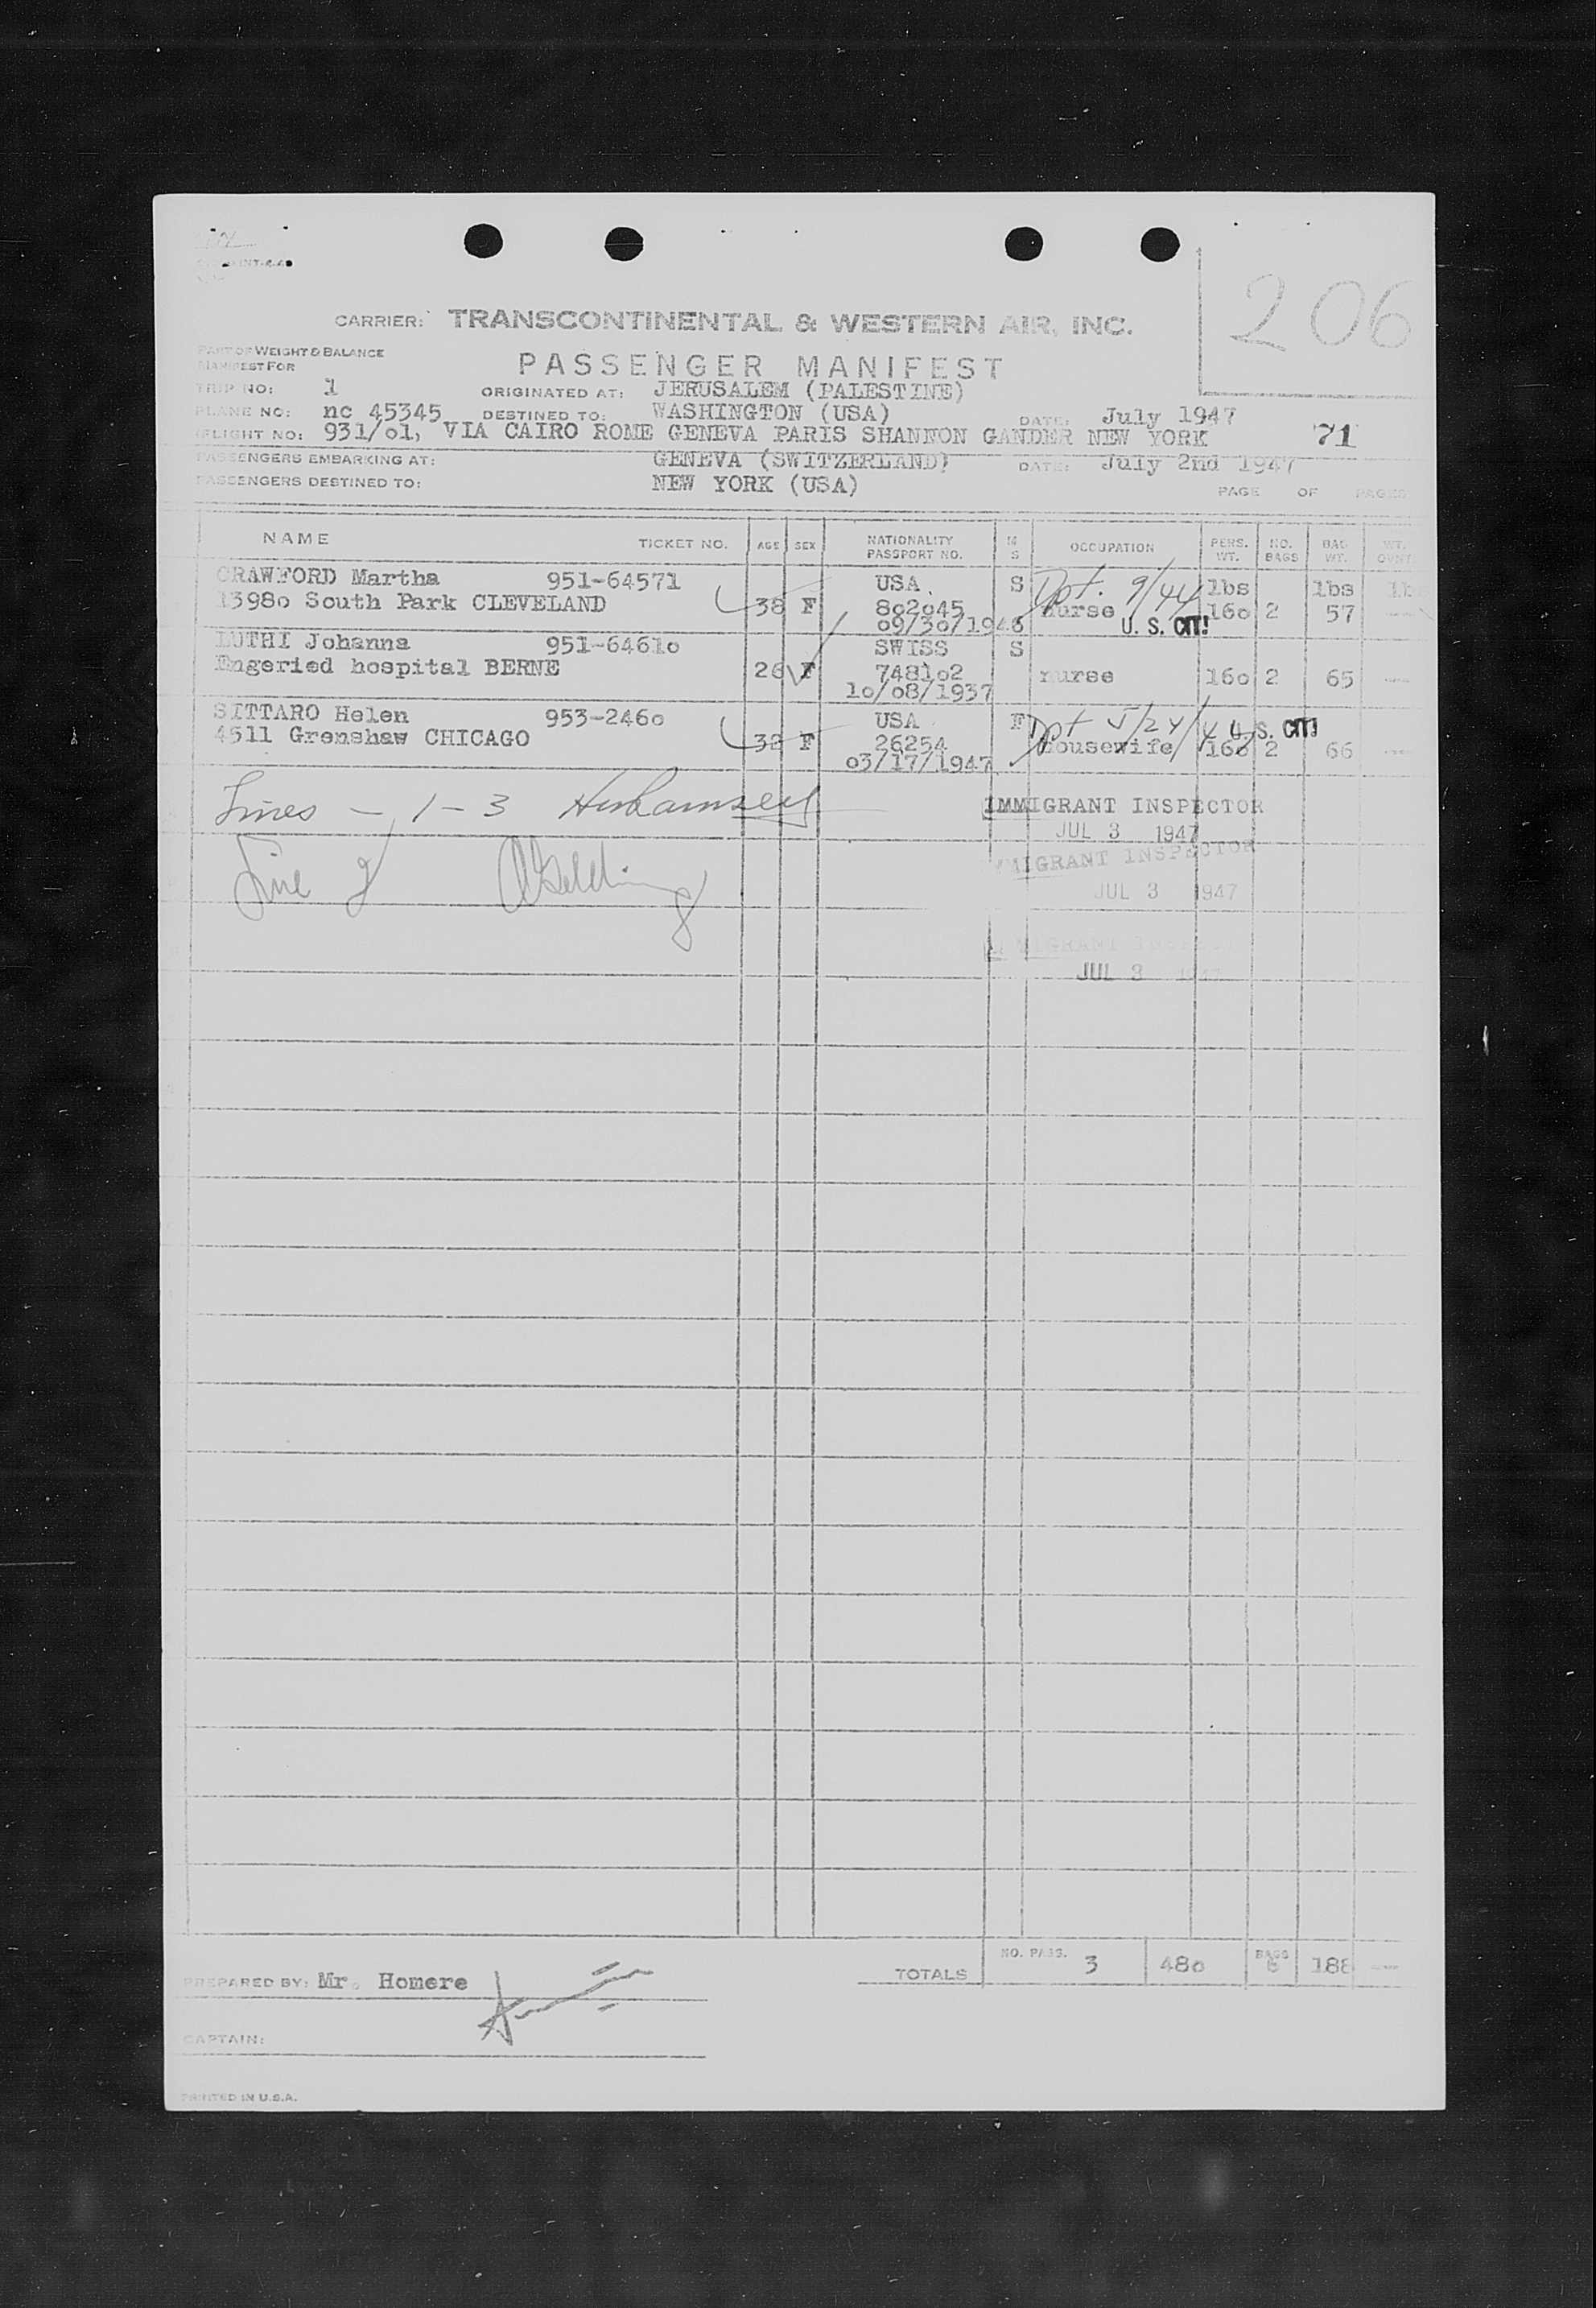 206
CARRIER: TRANSCONTINENTAL & WESTERN AIR, INC.
PART OF WEIGHT & BALANCE
MANIFEST FOR
PASSENGER MANIFEST
TRIP NO: 1 ORIGINATED AT: JERUSALEM (PALESTINE)
PLANE NO: nc 45345 DESTINED TO: WASHINGTON (USA) DATE: July 1947
FLIGHT NO: 931/o1, VIA CAIRO ROME GENEVA PARIS SHANNON GANDER NEW YORK 71
PASSENGERS EMBARKING AT: GENEVA (SWITZERLAND) DATE: July 2nd 1947
PASSENGERS DESTINED TO: NEW YORK (USA) PAGE OF PAGES
NAME TICKET NO. AGE SEX NATIONALITY PASSPORT NO. M S OCCUPATION PERS. WT. NO. BAGS BAG WT. WT.
CRAWFORD Martha 951-64571 USA. S Dpt. 9/44 lbs lbs
1398o South Park CLEVELAND 38 F 8o2o45 nurse 16o 2 57
o9/3o/1946 U. S. CIT!
LUTHI Johanna 951-6461o SWISS S
Engeried hospital BERNE 26 F 7481o2 nurse 16o 2 65
1o/o8/1937
SITTARO Helen 953-246o USA F Dpt 5/24/4 U. S. CIT!
4511 Grenshaw CHICAGO 38 F 26254 housewife 16o 2 66
o3/17/1947
Lines - 1-3
IMMIGRANT INSPECTOR
JUL 3 1947
IMMIGRANT INSPECTOR
Line 2
JUL 3 1947
IMMIGRANT
JUL 3 1947
TOTALS NO. PASS. 3 48o BAGS 6 188
PREPARED BY: Mr. Homere
CAPTAIN:
PRINTED IN U.S.A.